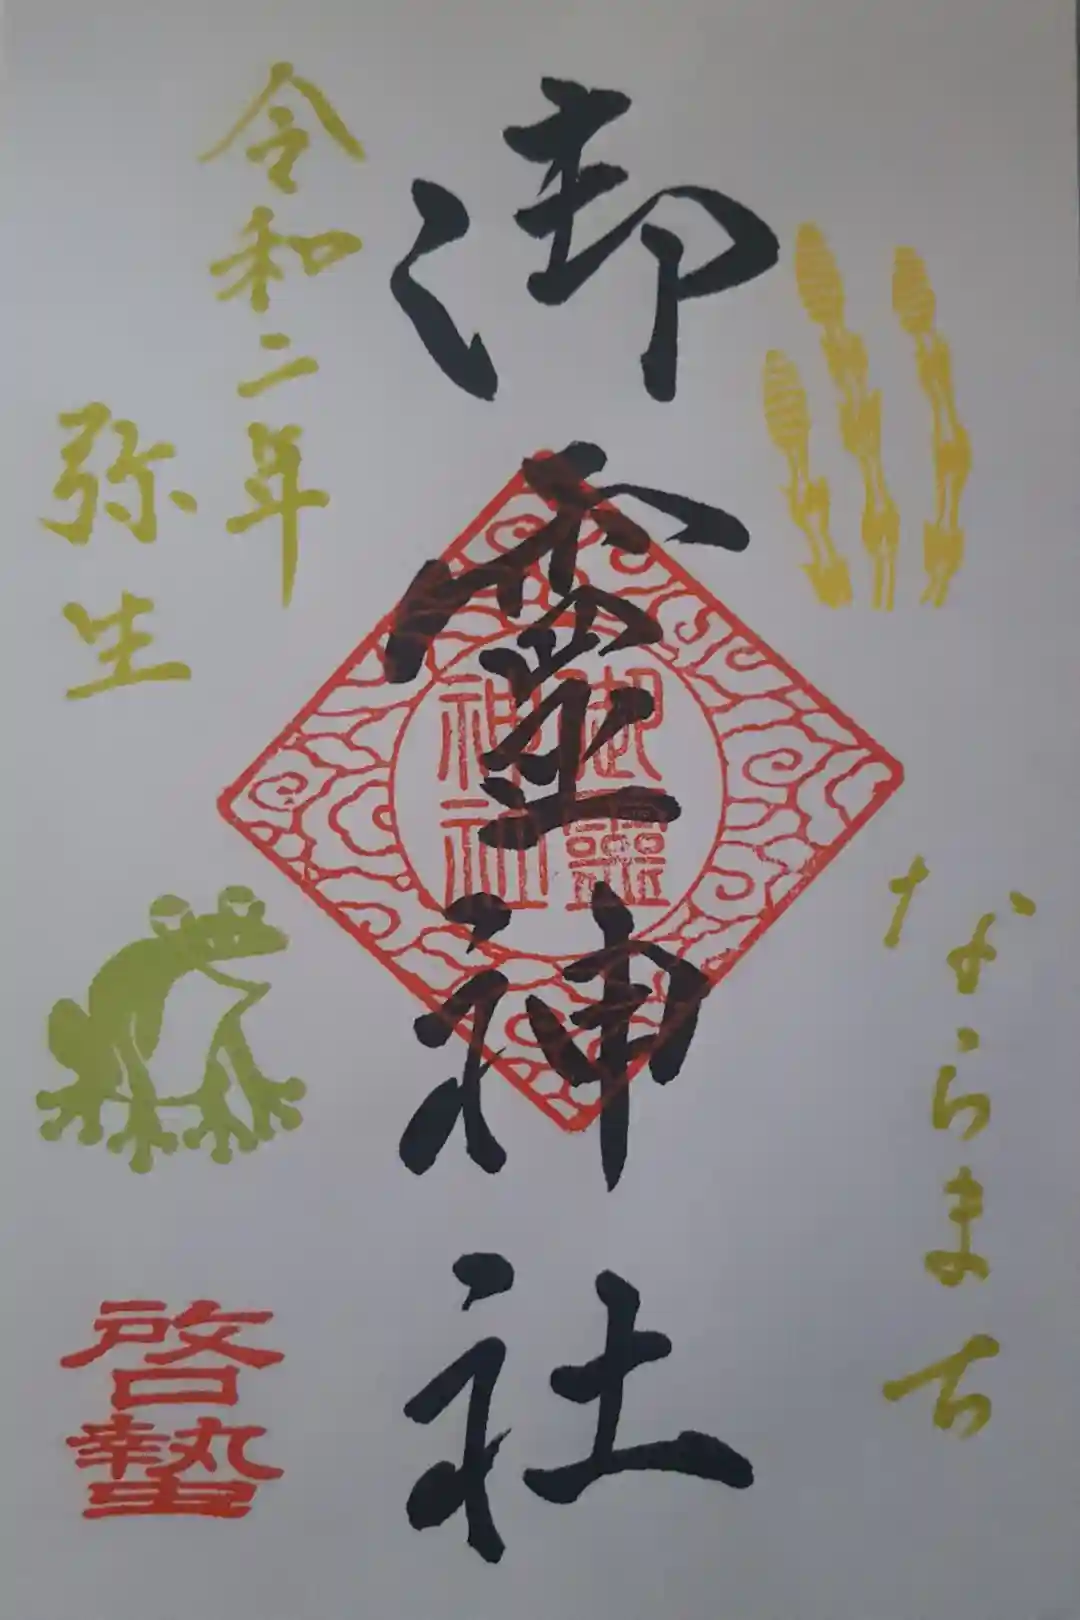 ならまち
御霊神社
御霊
神社
令和二年
弥生
啓蟄